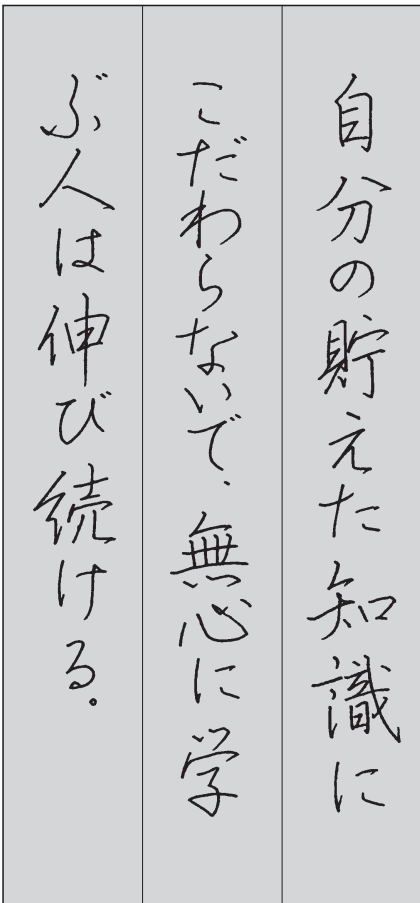 自分の貯えた知識に
こだわらないで、無心に学
ぶ人は伸び続ける。